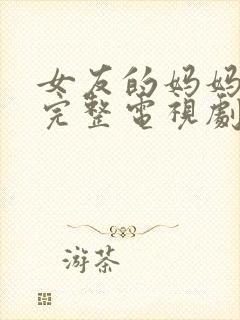 女友的妈妈
完整電視劇
游茶